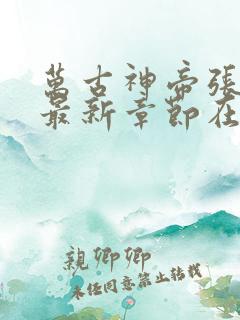 萬古神帝張
最新章節在
親卿卿
未任同意禁止转载